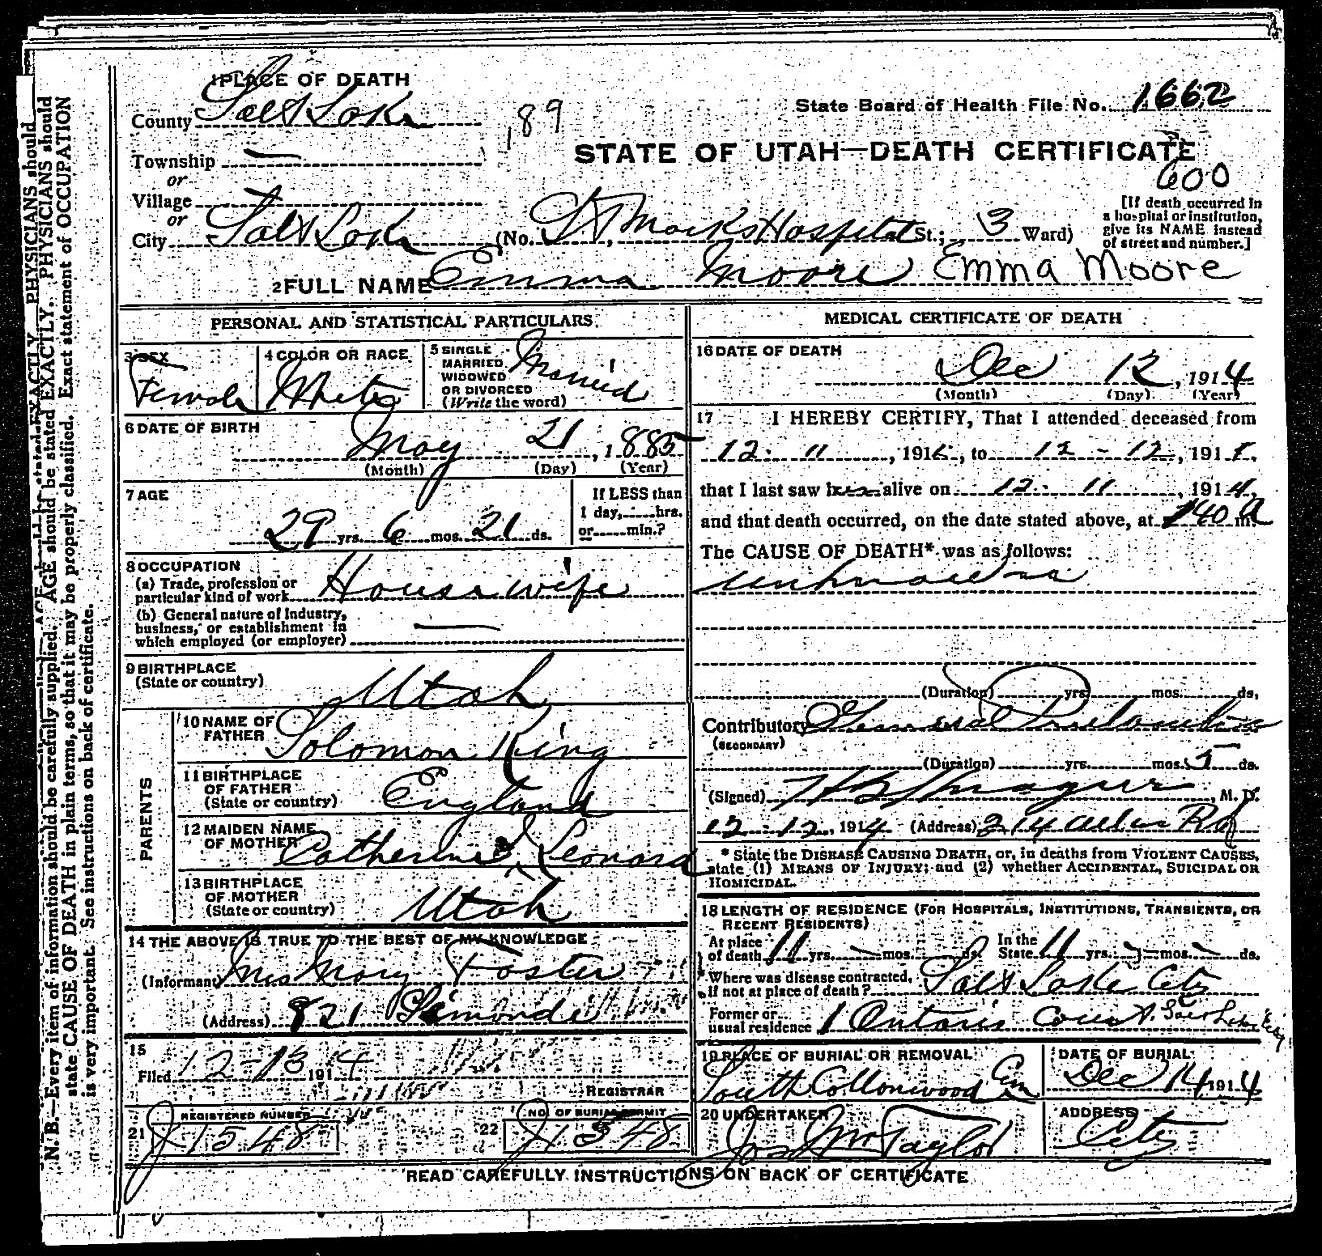 N. B.—Every item of information should be carefully supplied. AGE should be stated EXACTLY. PHYSICIANS should
state CAUSE OF DEATH in plain terms, so that it may be properly classified. Exact statement of OCCUPATION
is very important. See instructions on back of certificate.
1 PLACE OF DEATH
County Salt Lake
189
State Board of Health File No. 1662
Township —
or
STATE OF UTAH—DEATH CERTIFICATE
600
Village
or
City Salt Lake (No. St Marks Hospital St.; 3 Ward)
[If death occurred in
a hospital or institution,
give its NAME instead
of street and number.]
2 FULL NAME Emma Moore Emma Moore
PERSONAL AND STATISTICAL PARTICULARS
3 SEX
Female
4 COLOR OR RACE
White
5 SINGLE
MARRIED
WIDOWED
OR DIVORCED
(Write the word)
Married
6 DATE OF BIRTH
May 21, 1885
(Month) (Day) (Year)
7 AGE
29 yrs. 6 mos. 21 ds.
If LESS than
1 day, hrs.
or min.?
8 OCCUPATION
(a) Trade, profession or
particular kind of work Housewife
(b) General nature of Industry,
business, or establishment in
which employed (or employer) —
9 BIRTHPLACE
(State or country)
Utah
PARENTS
10 NAME OF
FATHER
Solomon King
11 BIRTHPLACE
OF FATHER
(State or country)
England
12 MAIDEN NAME
OF MOTHER
Catherine Leonard
13 BIRTHPLACE
OF MOTHER
(State or country)
Utah
14 THE ABOVE IS TRUE TO THE BEST OF MY KNOWLEDGE
(Informant) Mrs Mary Foster
(Address) 821
15
Filed 12-13 1914
REGISTRAR
21 REGISTERED NUMBER
J1548
22 NO. OF BURIAL PERMIT
J1548
MEDICAL CERTIFICATE OF DEATH
16 DATE OF DEATH
Dec 12, 1914
(Month) (Day) (Year)
17 I HEREBY CERTIFY, That I attended deceased from
12 - 11, 191 , to 12 - 12, 191 ,
that I last saw her alive on 12 - 11, 1914,
and that death occurred, on the date stated above, at 140 a m.
The CAUSE OF DEATH* was as follows:
unknown
(Duration) yrs. mos. ds.
Contributory General
(SECONDARY)
(Duration) yrs. mos. 5 ds.
(Signed) M. D.
12-12, 1914 (Address)
* State the DISEASE CAUSING DEATH, or, in deaths from VIOLENT CAUSES,
state (1) MEANS OF INJURY; and (2) whether ACCIDENTAL, SUICIDAL OR
HOMICIDAL.
18 LENGTH OF RESIDENCE (FOR HOSPITALS, INSTITUTIONS, TRANSIENTS, OR
RECENT RESIDENTS)
At place
of death 11 yrs. — mos. ds.
In the
State 11 yrs. — mos. — ds.
Where was disease contracted,
if not at place of death? Salt Lake City
Former or
usual residence 1 Ontario Court. Salt Lake City
19 PLACE OF BURIAL OR REMOVAL
South Cottonwood Cem
DATE OF BURIAL
Dec 14 1914
20 UNDERTAKER
Jos Wm Taylor
ADDRESS
City
READ CAREFULLY INSTRUCTIONS ON BACK OF CERTIFICATE